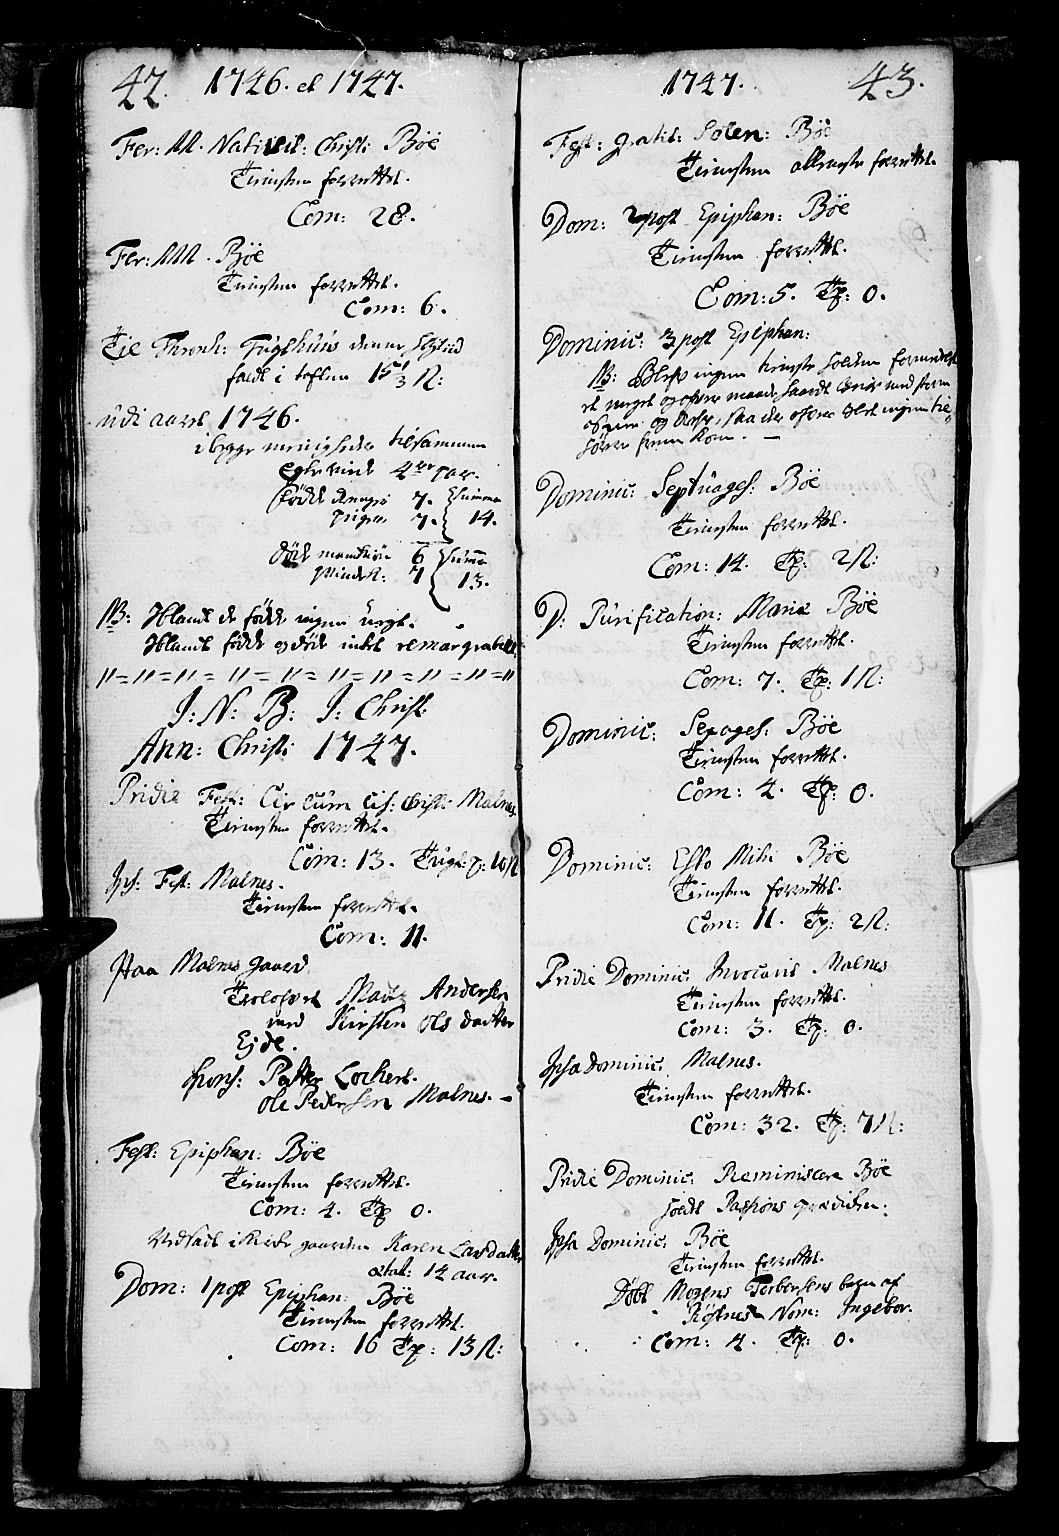 42. 1746. et 1747.
Fer: II. Nativit: Christi Böe
Tienesten forrettet.
Com: 28.
Fer: III. Böe
Tienesten forrettet.
Com: 6.
Tie Tronh: Tugthuus denne Høytiid
faldt i taflen 15 1/3 ß:
udi aaret 1746.
i begge menigheder tilsammen
Egteviede 4re par.
fødde drenge 7. Summa
piger 7. 14.
døde mandkiön 6 Summa
qvindek: 7 13.
NB: Iblant de födde ingen Uegt.
Iblant födde og døde intet remarqvabelt.
I: N: B: I: Christi
Ann: Christi 1747.
Pridie Fest: Circumcis: Christi Malnes
Tienesten forrettet.
Com: 13. Tugt: p: 10 ß
Ips: Fest: Malnes.
Tienesten forrettet.
Com: 11.
Paa Malnes gaard
Trolofvet Mads Andersen
med Kirsten Ols datter
Eide.
Spons: Peter Lochert.
Ole Pedersen Malnes. –
Fest: Epiphan: Böe
Tienesten forrettet.
Com: 4. Tp 0.
Nedsadt i Kirke gaarden Karen Larsdatter
ætat: 14 aar.
Dom: 1 post Epiphan: Böe
Tienesten forrettet.
Com: 16 Tp: 13 ß:
1747. 43.
Fest: gratit: Solen: Böe
Tienesten allene forrettet.
Dom: 2 post Epiphan: Böe
Tienesten forrettet.
Com: 5. Tp: 0.
Dominic: 3 post Epiphan:
NB: Blef ingen tieneste holden formedelst
et meget og ofver maade haardt Veir med storm
og Kaaf, saa der ofver alt ingen til
hörer frem kom. –
Dominic: Septuages: Böe
Tienesten forrettet.
Com: 14. Tp: 2 ß:
D: Purification: Mariæ Böe
Tienesten forrettet.
Com: 7. Tp: 1 ß:
Dominic: Sexages: Böe
Tienesten forrettet.
Com: 4. Tp: 0.
Dominic: Esto Mihi Böe
Tienesten forrettet.
Com: 11. Tp: 2 ß:
Pridie Dominic: Invocavit Malnes
Tienesten forrettet.
Com: 3. Tp: 0.
Ipsa Dominic: Malnes.
Tienesten forrettet.
Com: 32. Tp: 7 ß:
Pridie Dominic: Reminiscere Böe
holdt Passions prædiken:
Ipsa Dominic: Böe
Tienesten forrettet.
Döbt Mogens Torbersens barn af
Röfnes Nom: Ingebor.
Com: 4. Tp: 0.